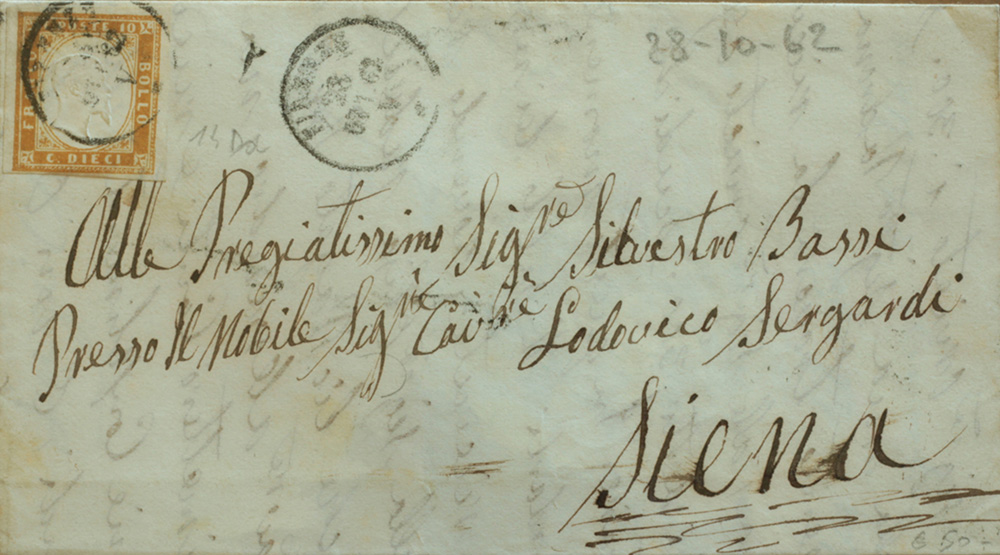 FIRENZE
FRANCO BOLLO
C. DIECI
FIRENZE
28
OTT
62
28-10-62
Alle Pregiatissimo Sigre Silvestro Bassi
Presso Il Nobile Sigre Cavre Lodovico Sergardi
Siena